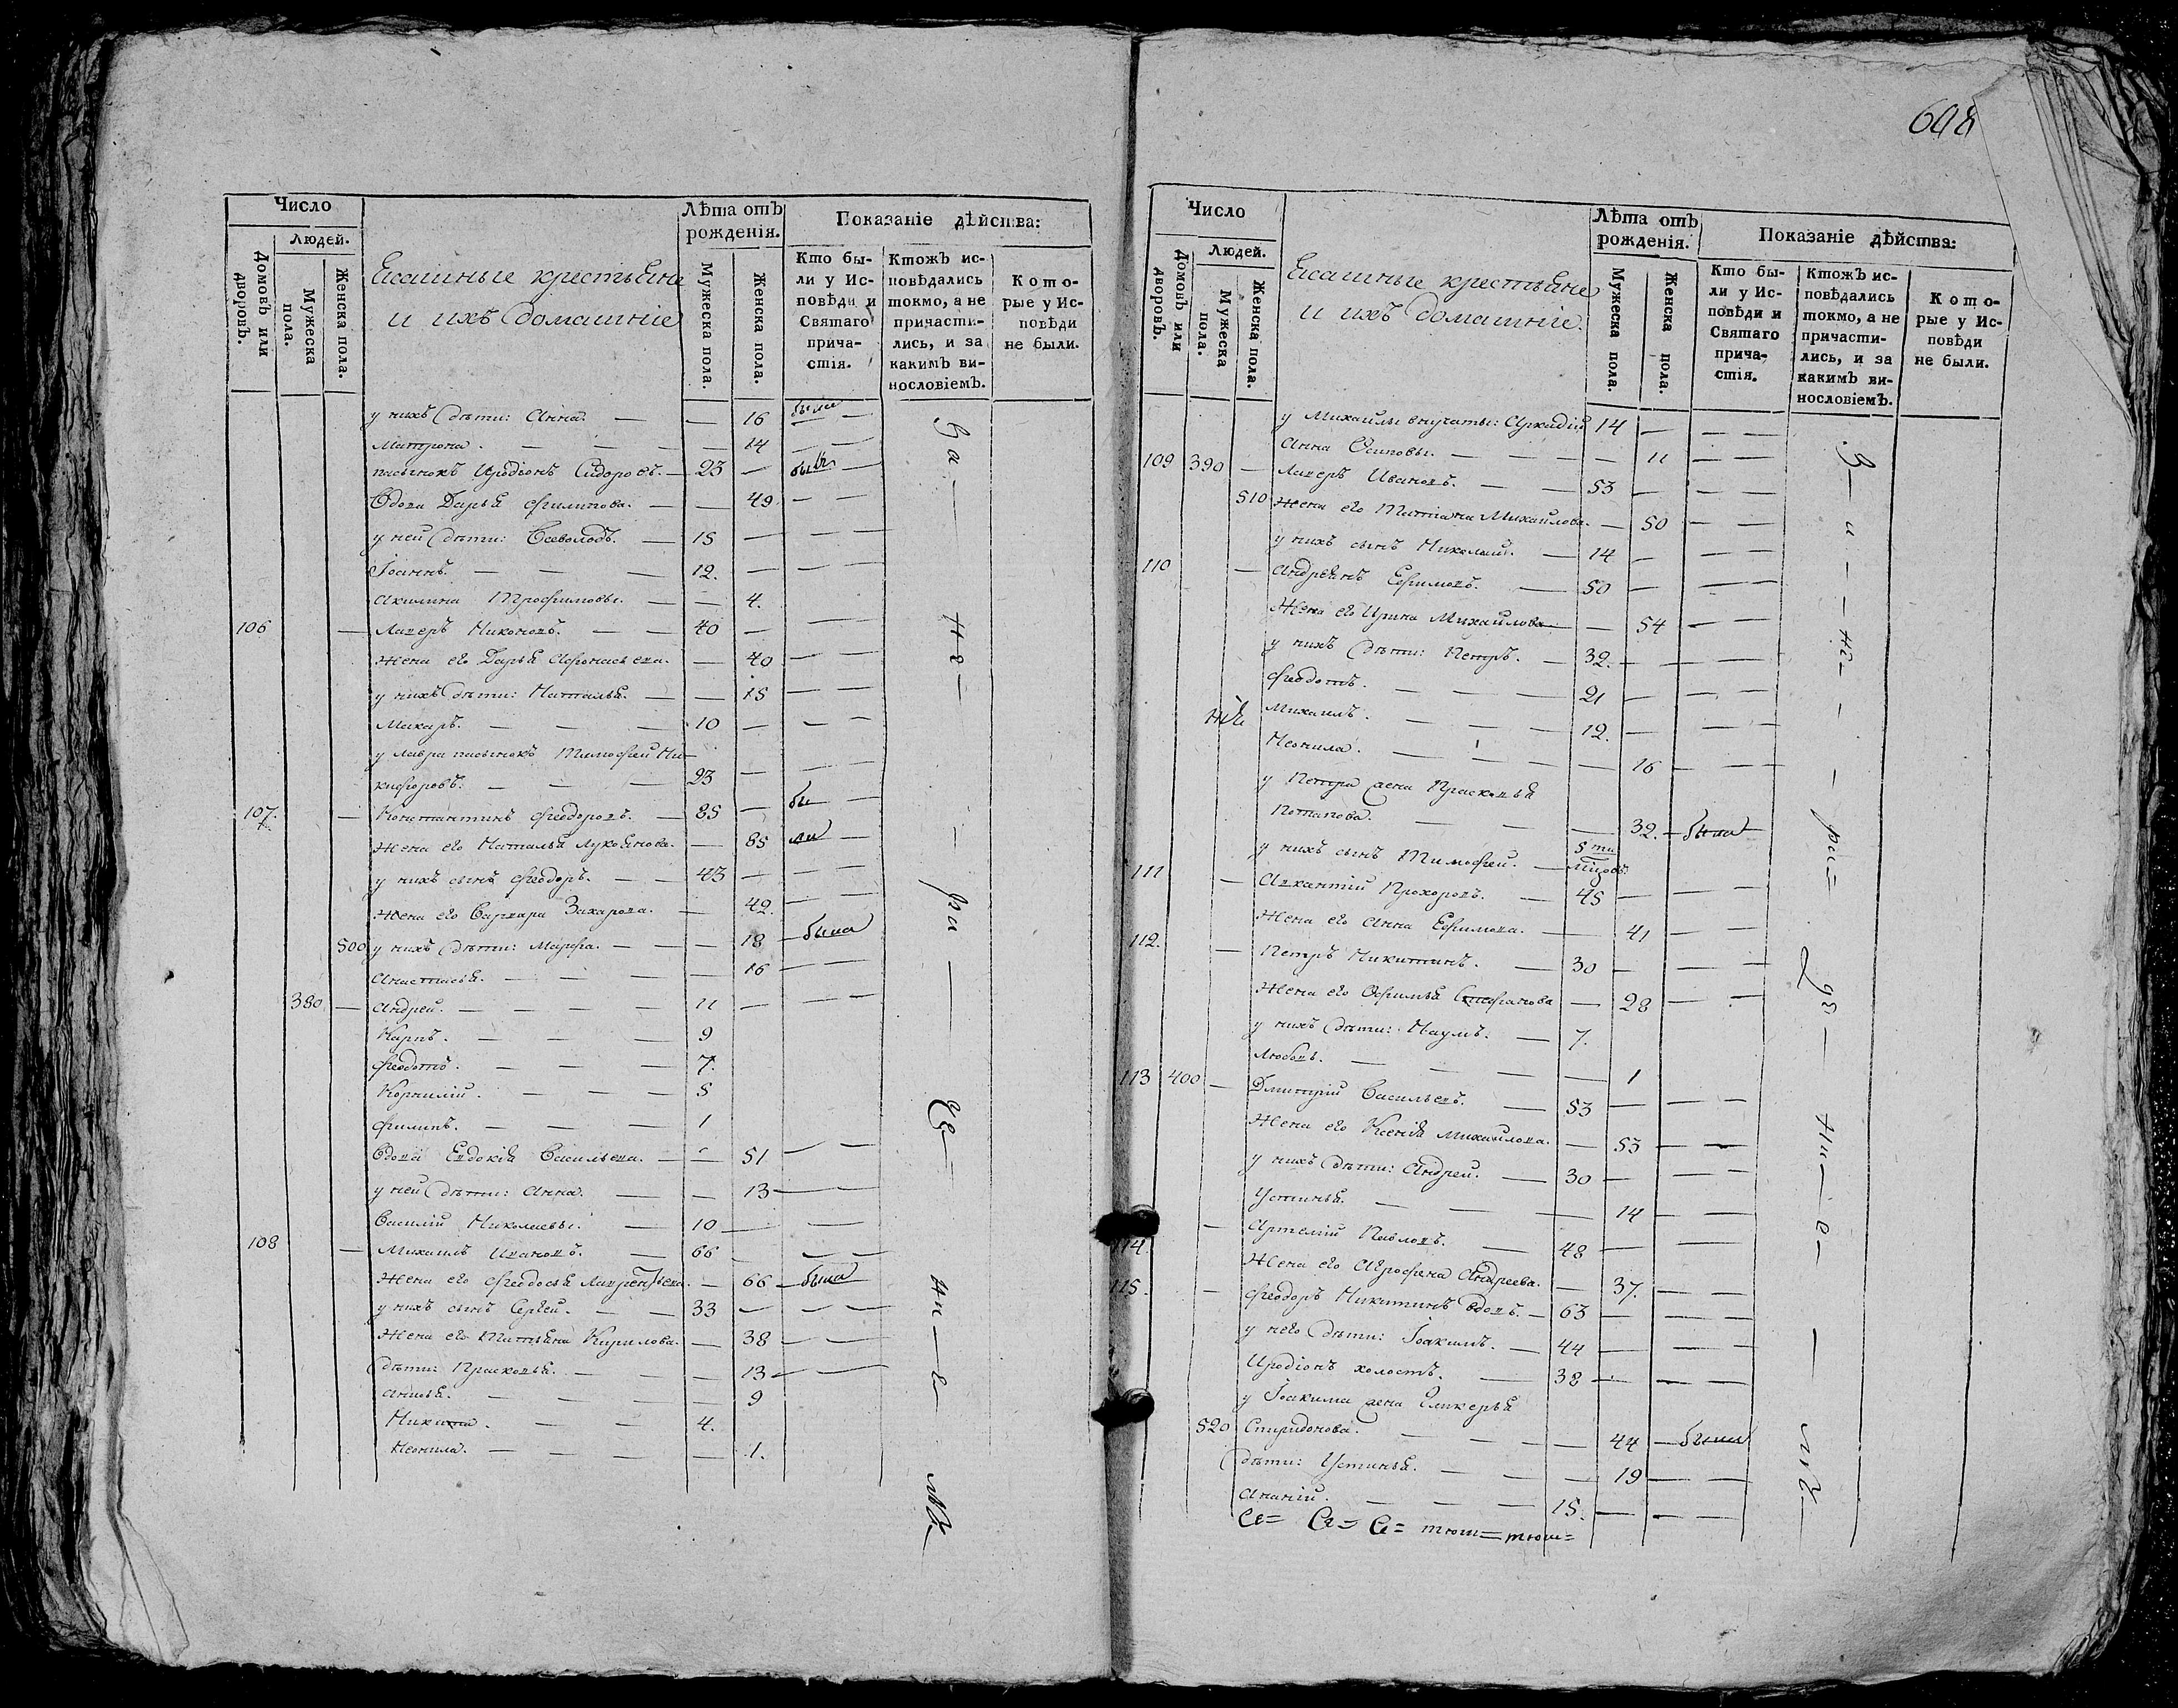 Число
Людей.
Домовъ или дворовъ.
Мужеска пола.
Женска пола.
Ясашные крестьяне
и ихъ домашніе
Лѣта отъ рожденія.
Мужеска пола.
Женска пола.
Показаніе дѣйства:
Кто бы-
ли у Ис-
повѣди и
Святаго
прича-
стія.
Ктожъ ис-
повѣдались
токмо, а не
причасти-
лись, и за
какимъ ви-
нословіемъ.
Кото-
рые у Ис-
повѣди
не были.
у нихъ дѣти: Анна. — — 16 были —
Матрона. — — — 14 — —
пасынокъ Иродіонъ Сидоровъ. — 23 — былъ —
Вдова Дарья Филипова. — — 49. — —
у ней дѣти: Всеволодъ. — 15 — — —
Іоаннъ. — — — 12. — — —
Акилина Трофимовы. — — 4.
106 — Лавръ Никоновъ. — — 40 — — —
Жена его Дарья Афонасьева. — 40 — —
у нихъ дѣти: Наталья. — — 15 — —
Макаръ. — — — 10 — — —
у Лавра пасынокъ Тимофей Ни-
кифоровъ. — — — 23 — — —
107. — Константинъ Феодоровъ. — 85 — бы —
Жена его Наталья Лукоянова. — 85 ли —
у нихъ сынъ Феодоръ. — — 43 — — —
Жена его Варвара Захарова. — 42. — —
500 у нихъ дѣти: Марфа. — — — 18 — была
Анастасья. — — — — 16 — —
380 — Андрей. — — — — 11 — — —
Карпъ. — — — 9
Феодотъ. — — — 7.
Корнилій. — — — 5
Филипъ. — — — 1
Вдова Евдокія Васильева. — — 51 — —
у ней дѣти: Анна. — — 13 — —
Василій Николаевы. — 10 — — —
108 — Михаилъ Ивановъ. — 66 — — —
Жена его Феодосья Лаврентьева. — 66 — была
у нихъ сынъ Сергей. — — 33 — — —
Жена его Татьяна Кирилова. — 38 — —
дѣти: Прасковья. — — — 13 — —
Анисья. — — — — 9
Никита. — — 4.
Неонила. — — — — 1.
За — не — ра — че — ни — е — мъ
608
Число
Людей.
Домовъ или дворовъ.
Мужеска пола.
Женска пола.
Ясашные крестьяне
и ихъ домашніе.
Лѣта отъ рожденія.
Мужеска пола.
Женска пола.
Показаніе дѣйства:
Кто бы-
ли у Ис-
повѣди и
Святаго
прича-
стія.
Ктожъ ис-
повѣдались
токмо, а не
причасти-
лись, и за
какимъ ви-
нословіемъ.
Кото-
рые у Ис-
повѣди
не были.
у Михайлы внучаты: Аркадій 14 — — —
Анна Осиповы. — — — — 11 — —
109 390 — Лавръ Ивановъ. — — 53 — — —
510 Жена его Татіана Михайлова. — 50 — —
у нихъ сынъ Николай. — 14 — — —
110 — Андреянъ Ефимовъ. — 50 — — —
Жена его Ирина Михайлова. — — 54 — —
у нихъ дѣти: Петръ. — 32. — — —
Феодотъ. — — — 21 — — —
Михаилъ. — — — 12. — — —
Неонила. — — — — 16 — —
у Петра жена Прасковья
Потапова. — — — 32. — была
у нихъ сынъ Тимофей. — 5 ти мцовъ.
111 — Аѵкентій Прохоровъ. — 45 — — —
Жена его Анна Ефимова. — 41 — —
112. — Петръ Никитинъ. — 30 — — —
Жена его Офимья Стефанова — 28 — —
у нихъ дѣти: Наумъ. — 7.
Любовь. — — — — 1
113 400 — Дмитрій Васильевъ. — 53 — — —
Жена его Ксенія Михайлова. — 53 — —
у нихъ дѣти: Андрей. — 30 — — —
Устинья. — — — — 14 — —
114. — Артемій Павловъ. — 48 — — —
Жена его Агрофена Андреева. — 37. — —
115. — Феодоръ Никитинъ вдовъ. — 63 — — —
у него дѣти: Іоакимъ. — 44 — — —
Иродіонъ холостъ. — 38 — — —
у Іоакима жена Гликерья
520 Спиридонова. — — — 44 — была
дѣти: Устинья. — — — 19 — —
Ананій. — — — 15. — — —